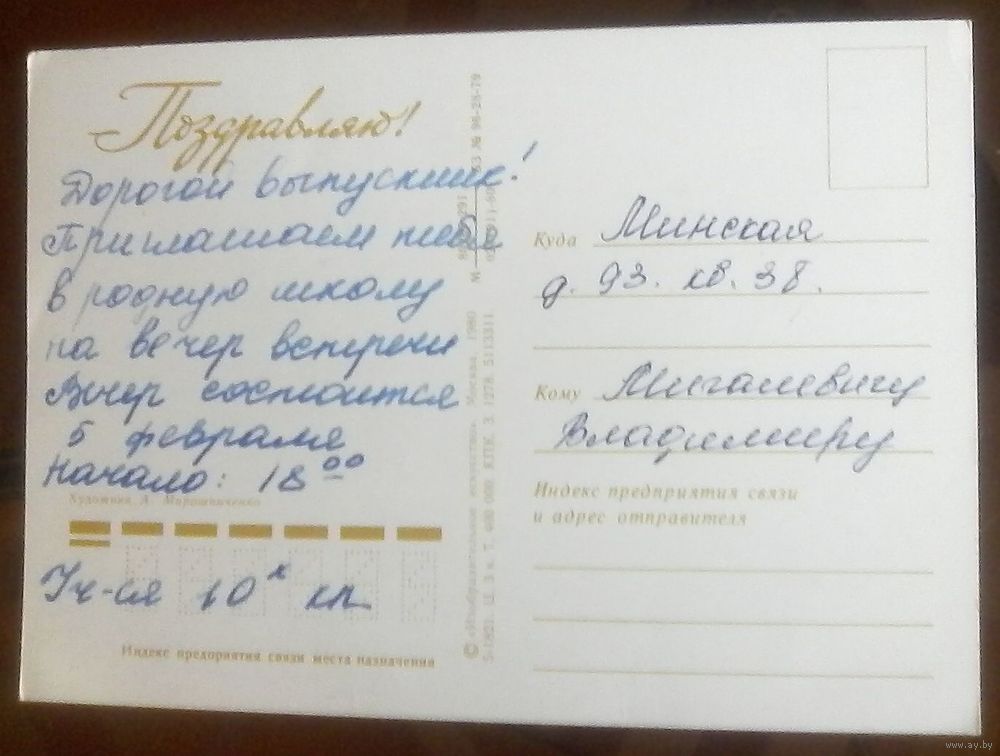 Поздравляю!
Дорогой выпускник!
Приглашаем тебя
в родную школу
на вечер встречи
Вечер состоится
5 февраля
Начало: 18⁰⁰
Художник А. Мирошниченко
Уч-ся 10 кл.
Индекс предприятия связи места назначения
© «Изобразительное искусство». Москва. 1980
5-1821. Ц. 3 к. Т. 400 000. КППК. З. 1278. 5113311.
63 № 96-26-79
Куда Минская
д. 93. кв. 38.
Кому Мигалевичу
Владимиру
Индекс предприятия связи
и адрес отправителя
www.ay.by